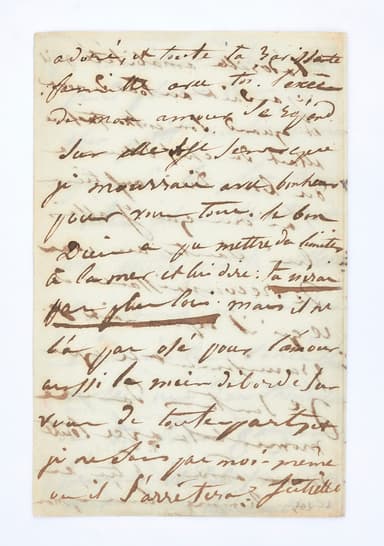 adoré, et toute ta ravissante
famille avec toi. L'excès
de mon amour se répand
sur elle et je sens que
je mourrais avec bonheur
pour vous tous. Le bon
Dieu a pu mettre des limites
à la mer et lui dire : tu n'iras
pas plus loin. mais il ne
l'a pas osé pour l'amour
aussi le mien déborde sur
vous de toute parts et
je ne sais pas moi-même
où il s'arrêtera ? Juliette